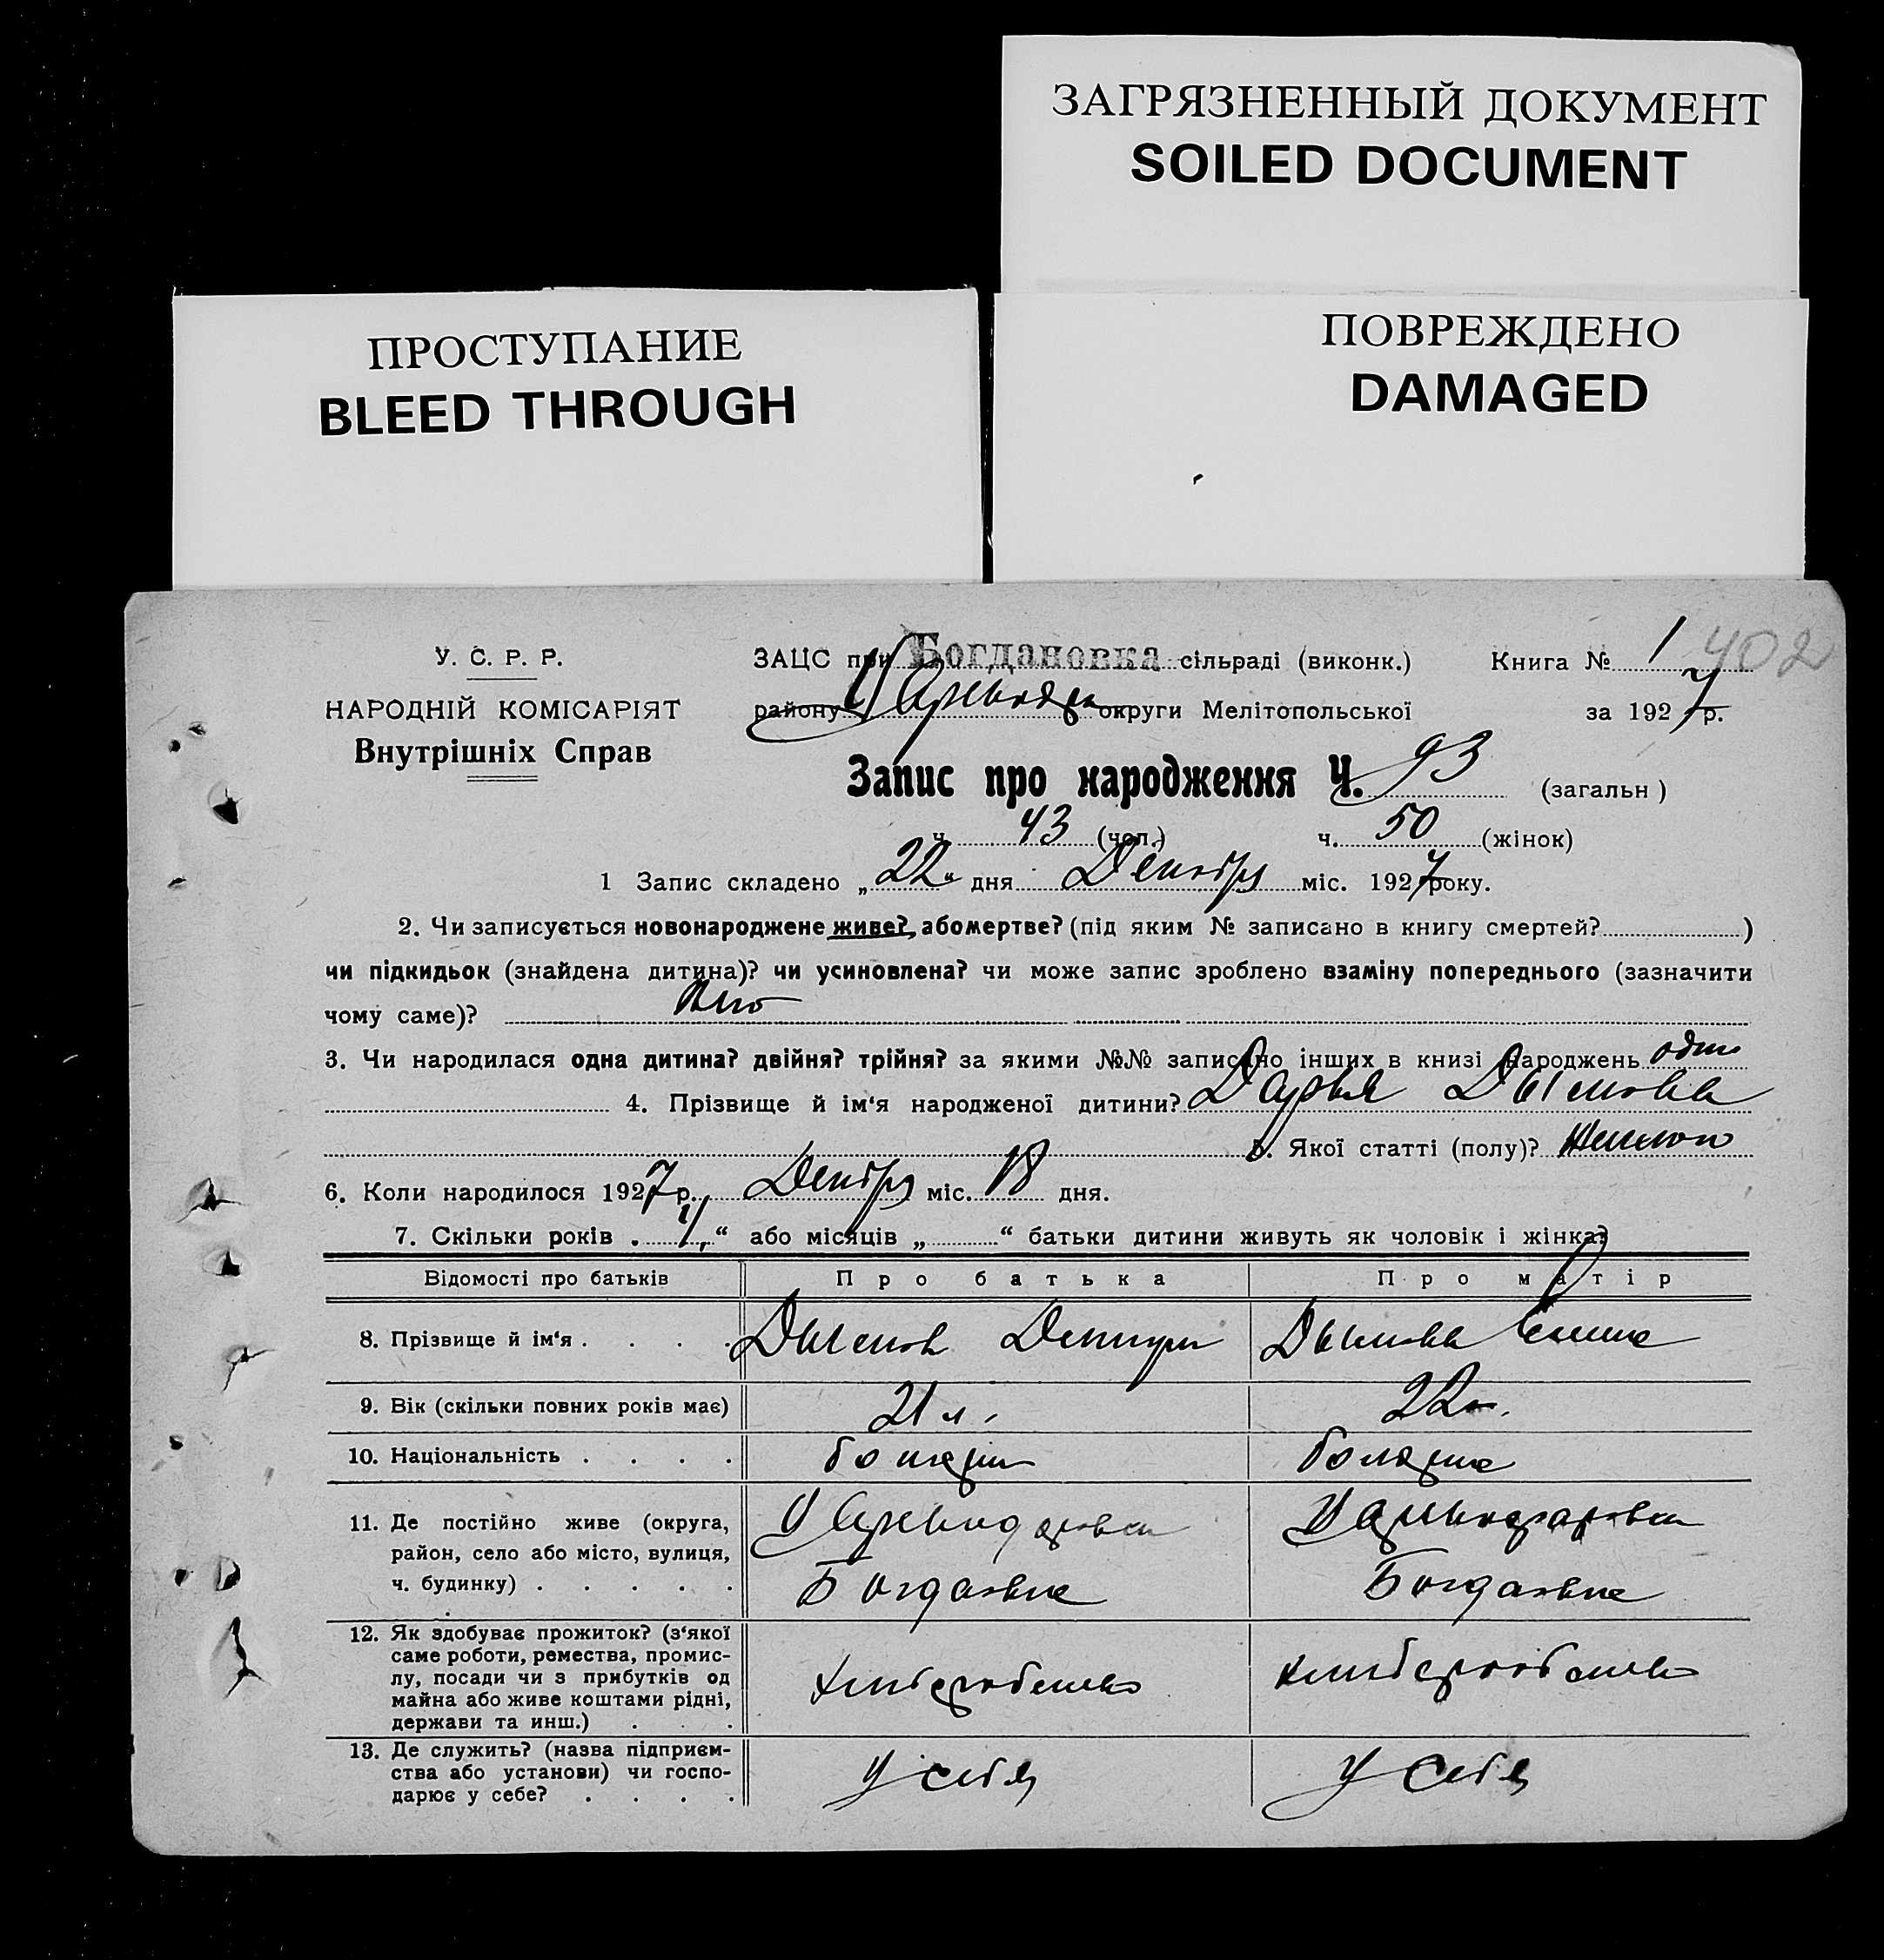 ЗАГРЯЗНЕННЫЙ ДОКУМЕНТ
SOILED DOCUMENT
ПРОСТУПАНИЕ
BLEED THROUGH
ПОВРЕЖДЕНО
DAMAGED
У. С. Р. Р.
НАРОДНІЙ КОМІСАРІЯТ
Внутрішніх Справ
ЗАЦС при Богдановка сільраді (виконк.) Книга № 1 402
району округи Мелітопольської за 1927 р.
Запис про народження Ч. 93 (загальн)
ч. 43 (чол.) ч. 50 (жінок)
1 Запис складено „22“ дня Декабря міс. 1927 року.
2. Чи записується новонароджене живе? або мертве? (під яким № записано в книгу смертей? )
чи підкидьок (знайдена дитина)? чи усиновлена? чи може запис зроблено взаміну попереднього (зазначити
чому саме)?
3. Чи народилася одна дитина? двійня? трійня? за якими №№ записано інших в книзі народжень одна
4. Прізвище й ім‘я народженої дитини? Дарья Дымова
5. Якої статті (полу)?
6. Коли народилося 1927 р. Декабря міс. 18 дня.
7. Скільки років „ “ або місяців „ “ батьки дитини живуть як чоловік і жінка?
Відомості про батьків Про батька Про матір
8. Прізвище й ім‘я . . . . Дымов Дмитрий Дымова Елена
9. Вік (скільки повних років має) 21 л. 22 л.
10. Національність . . . .
11. Де постійно живе (округа,
район, село або місто, вулиця,
ч. будинку) . . . . . Богдановка Богдановка
12. Як здобуває прожиток? (з‘якої
саме роботи, ремества, промис-
лу, посади чи з прибутків од
майна або живе коштами рідні,
держави та инш.) . . .
13. Де служить? (назва підприєм-
ства або установи) чи госпо-
дарює у себе? . . . . У себя У себя